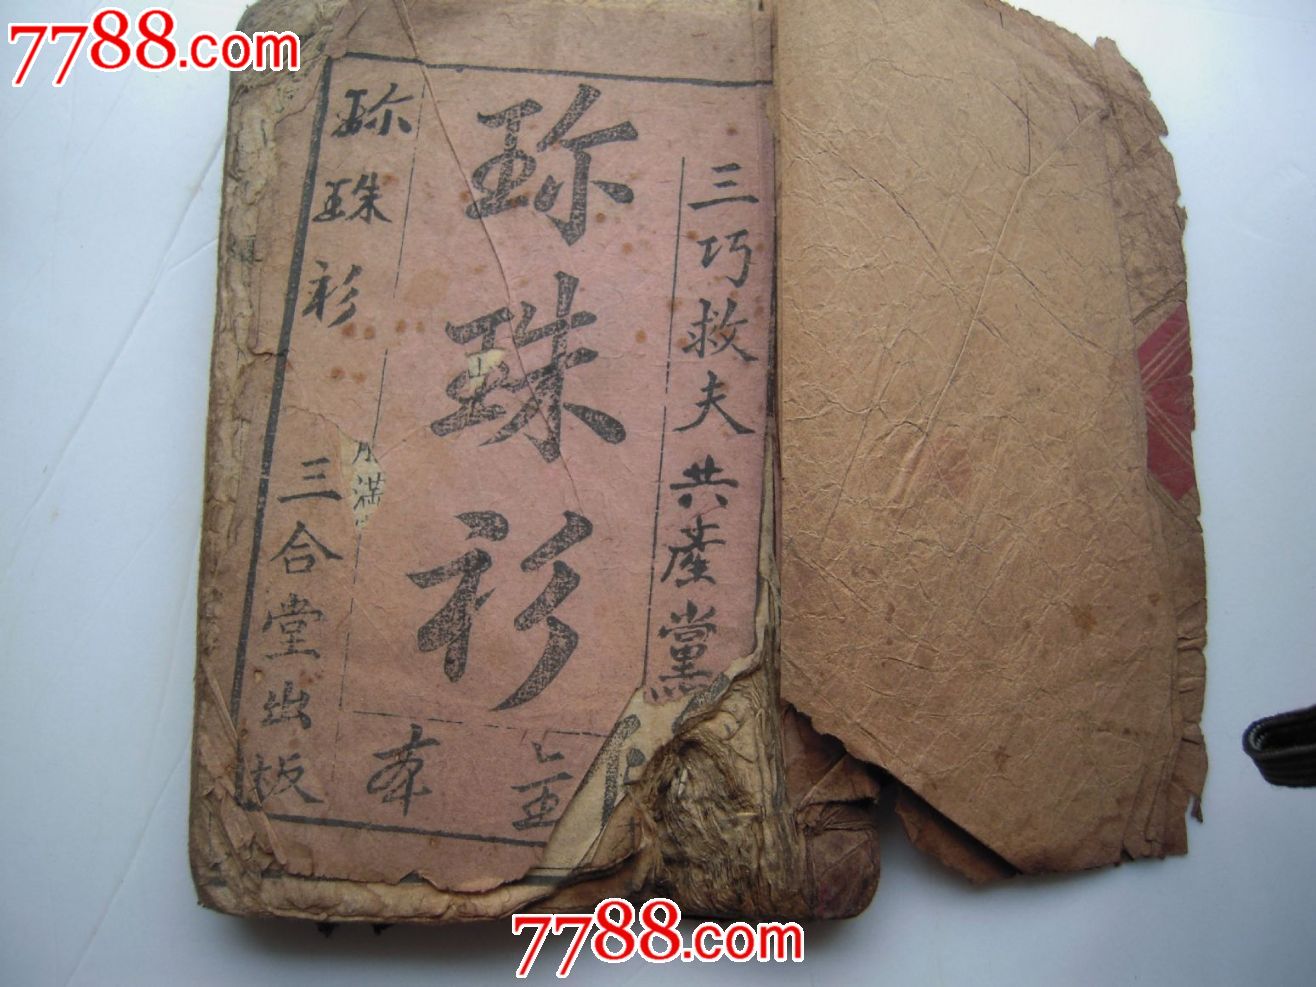 7788.com
三巧救夫 共產黨
珎珠衫
全本
珎珠衫
三合堂出板
滿
7788.com